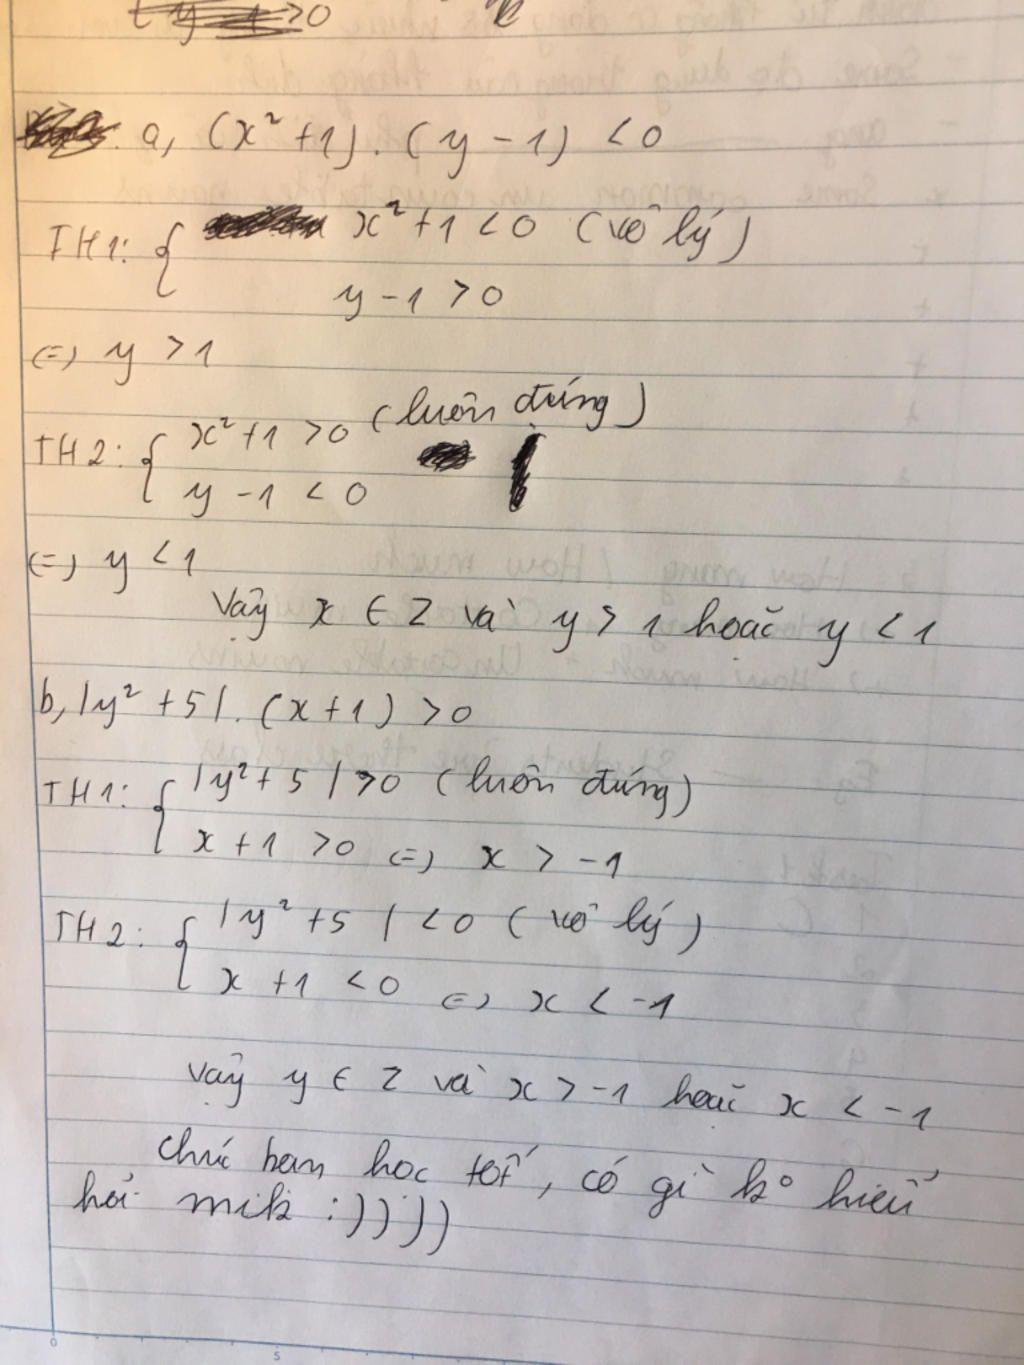 y - 1 > 0
a, (x² + 1). (y - 1) < 0
TH1: { x² + 1 < 0 (vô lý)
y - 1 > 0
(=) y > 1
TH2: { x² + 1 > 0 (luôn đúng)
y - 1 < 0
(=) y < 1
Vậy x ∈ Z và y > 1 hoặc y < 1
b, |y² + 5|. (x + 1) > 0
TH1: { |y² + 5| > 0 (luôn đúng)
x + 1 > 0 (=) x > -1
TH2: { |y² + 5| < 0 (vô lý)
x + 1 < 0 (=) x < -1
Vậy y ∈ Z và x > -1 hoặc x < -1
Chúc bạn học tốt, có gì ko hiểu
hỏi mik :))))